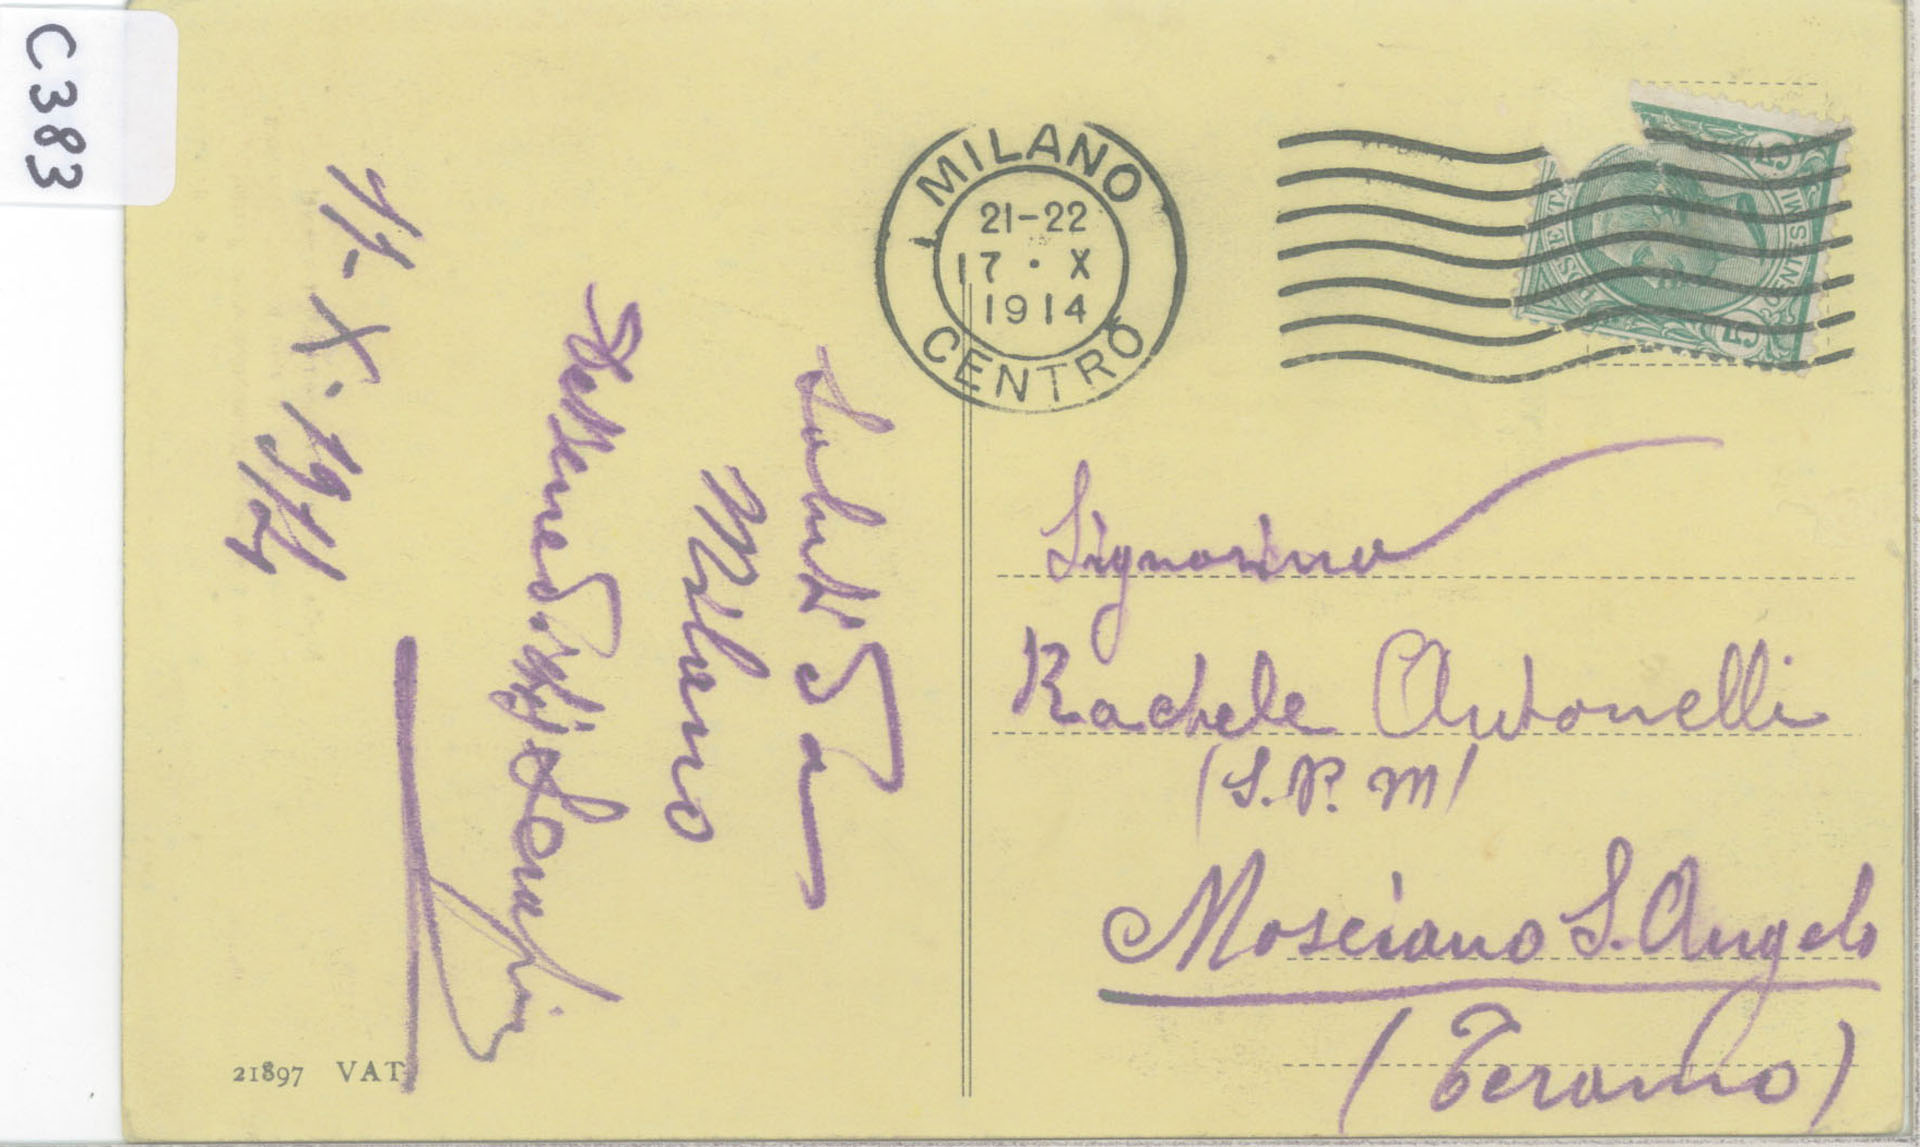 C383
MILANO
21-22
17 · X
1914
CENTRO
POSTE
CENTESIMI
5
5
Signorina
Rachele Antonelli
(S.P.M)
Mosciano S. Angelo
(Teramo)
Saluti da
Milano
17-X-1914
21897 VAT